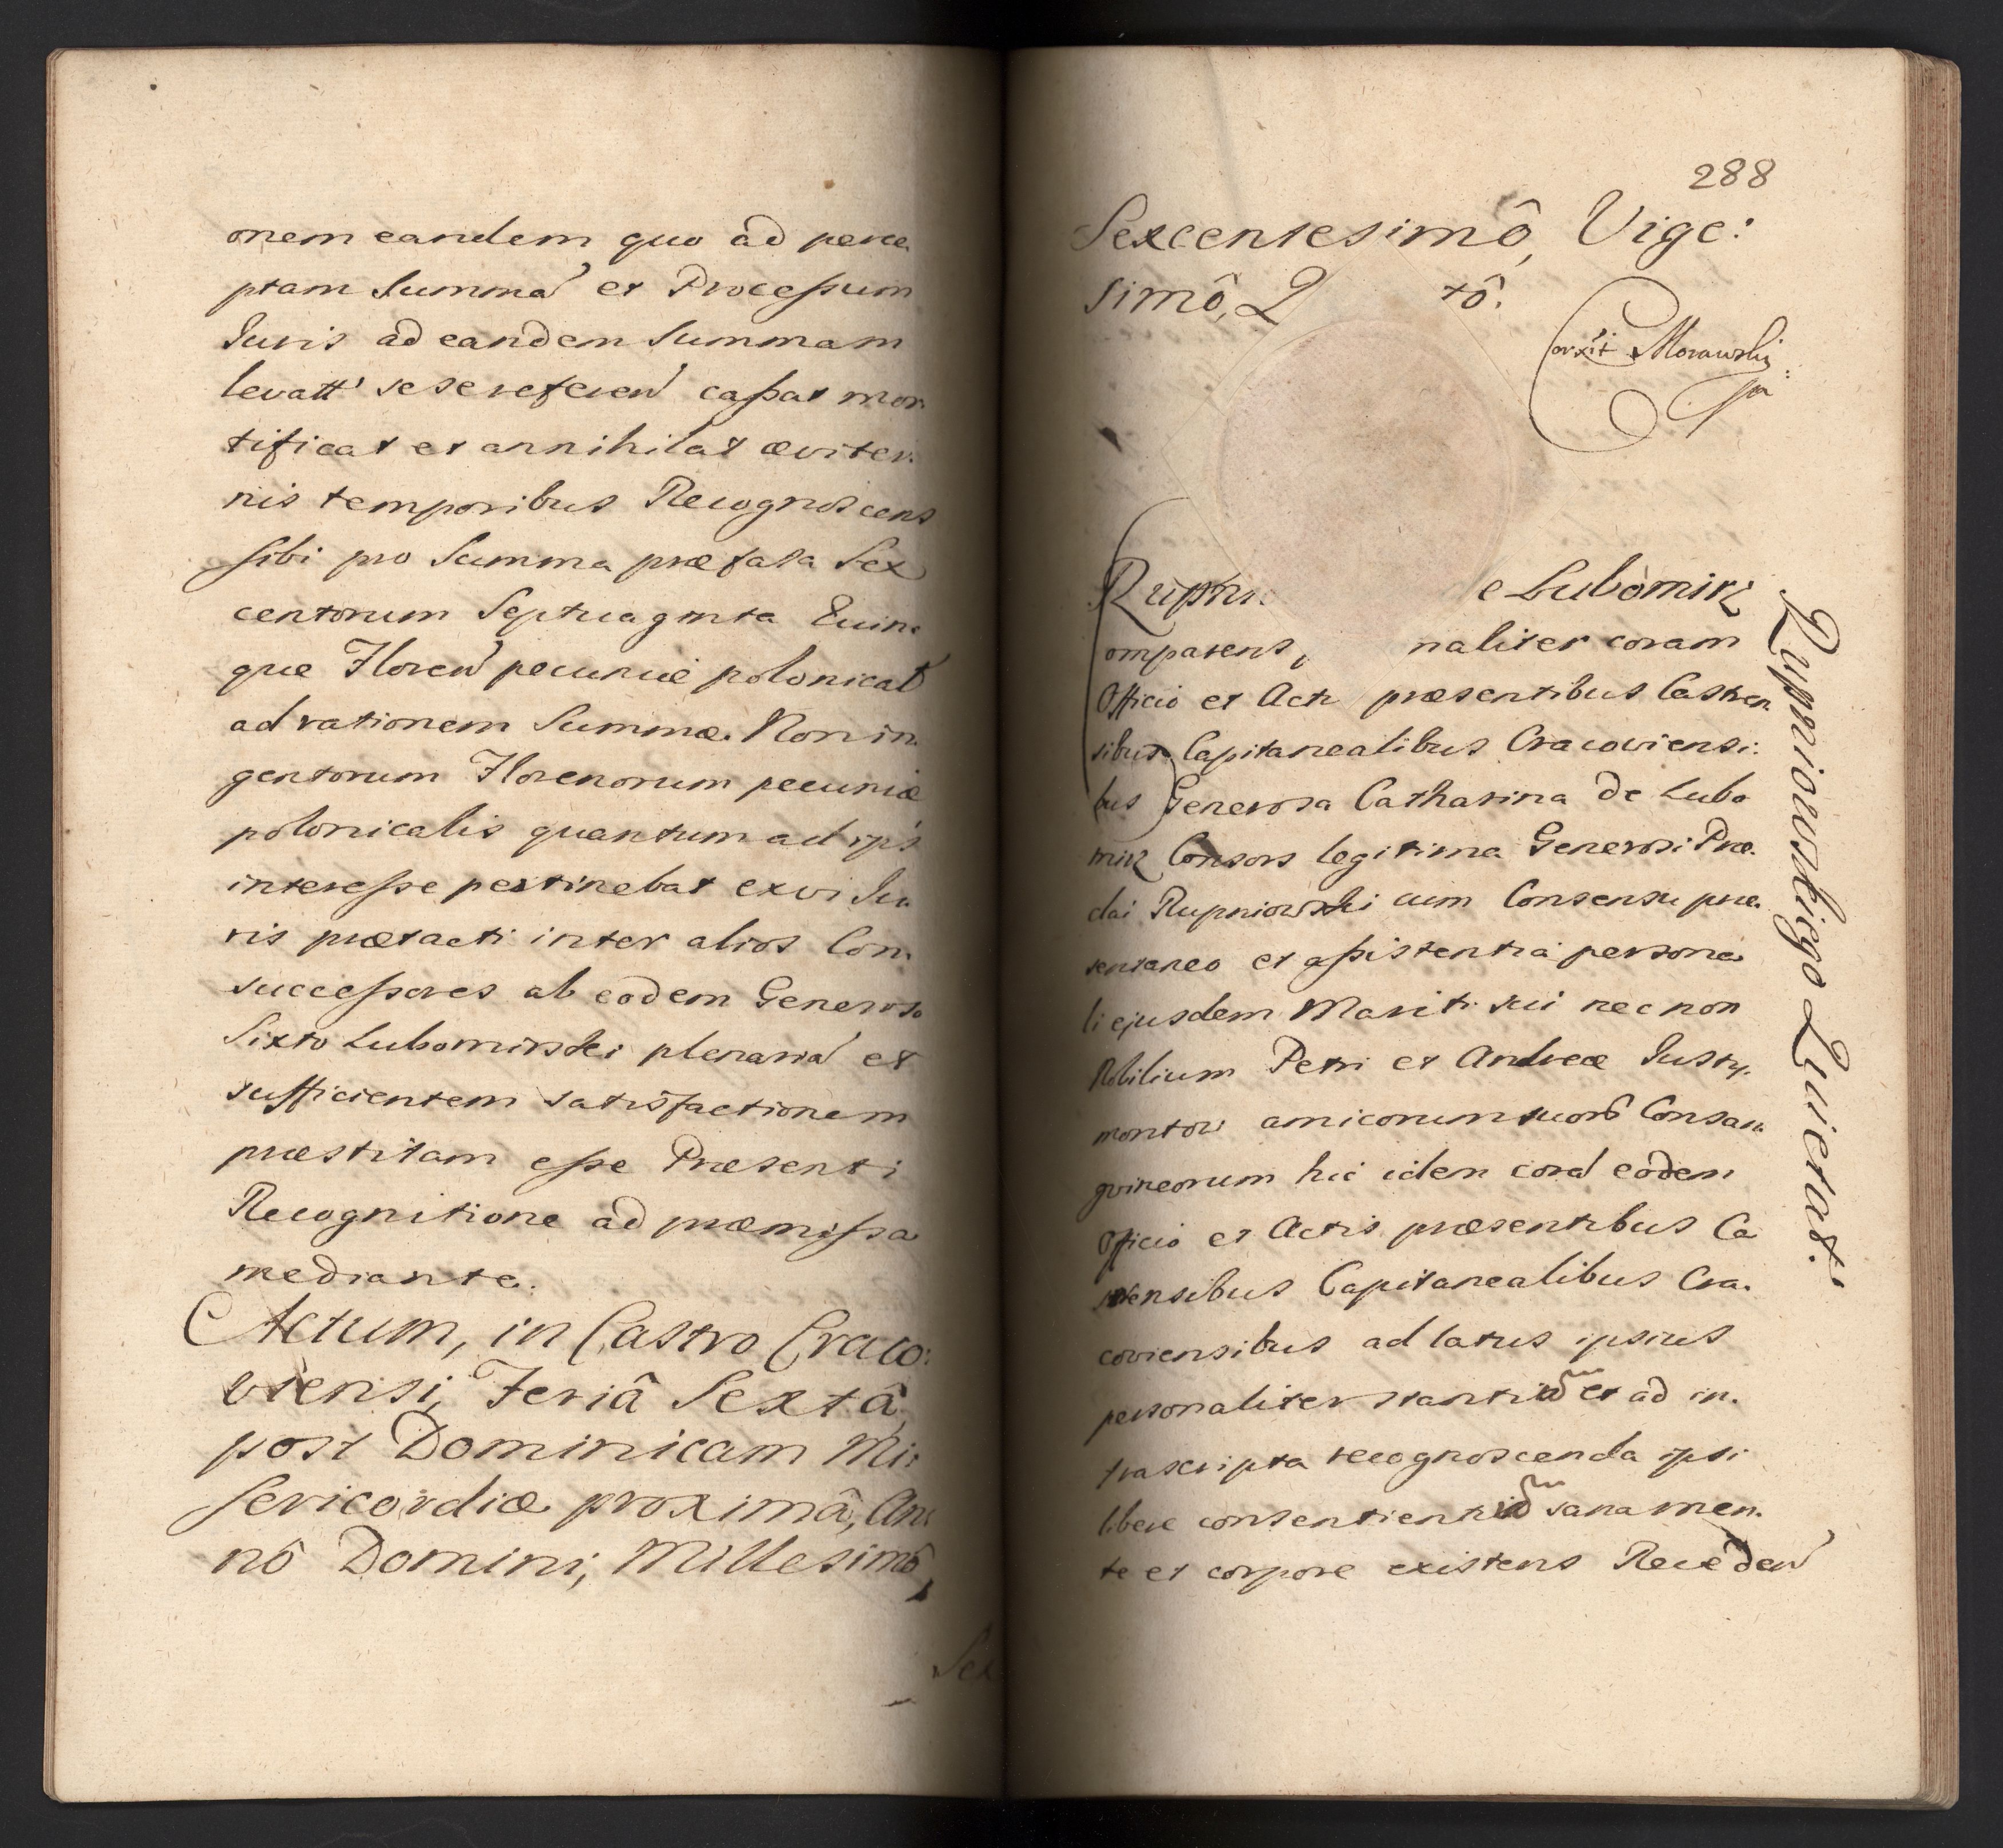 onem eandem quo ad perce
ptam Summā et Processum
Iuris ad eandem Summam
levatt' se se referen̄ cassat mor
tificat et annihilat æviter:
nis temporibus Recognoscens
sibi pro Summa præfata Sex
centorum Septuaginta Quin:
que Floren̄ pecuniæ polonicał
ad rationem Summæ Nonin
gentorum Florenorum pecuniæ
polonicalis quantum ad ips
interesse pertinebat ex vi Iu
ris prætacti inter alios Con
successores ab eodem Generoso
Sixto Lubomirski plenariā et
sufficientem satisfactionem
præstitam esse Præsenti
Recognitione ad præmissa
mediante.
Actum, in Castro Craco:
viensi, Feriâ Sextâ,
post Dominicam Mi:
sericordiæ proximâ, An
nô Domini, Millesimô
Sex
288
Sexcentesimô, Vige:
simô, Q tô.
Corxit Morawski
Rupni e Lubomirz
omparens, naliter coram
Officio et Act præsentibus Castren
sibus Capitanealibus Cracoviensi:
bus Generosa Catharina de Lubo
mirz Consors legitima Generosi Præ
clai Rupniowski cum Consensu præ
sentaneo et assistentia persona
li ejusdem Mariti sui nec non
Nobilium Petri et Andreæ Iusty
montow amicorum suorū Consan
gvineorum hic idem corā eodem
Officio et Actis præsentibus Ca
strensibus Capitanealibus Cra
coviensibus ad latus ipsius
personaliter stantiū et ad in
trascripta recognoscenda ipsi
libere consentientiū sana men
te et corpore existens Receden̄
Rupniowskiego Quietat: